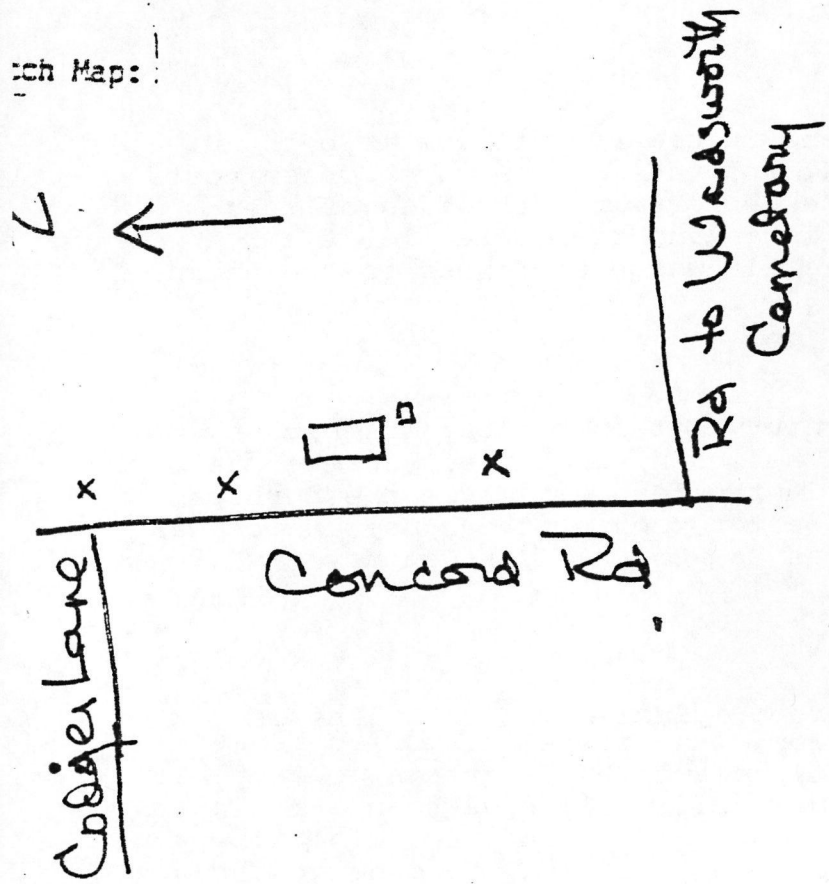 ch Map:
Rd to Wadsworth
Cemetary
x x x
Concord Rd.
Lane